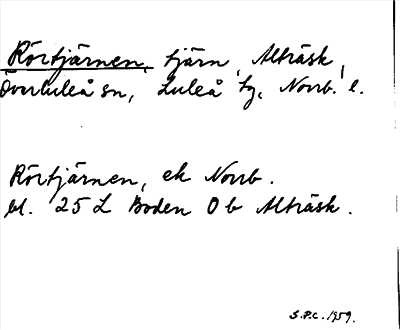 Rörtjärnen, tjärn, Alträsk,
Överluleå sn, Luleå tg, Norrb. l.
Rörtjärnen, ek Norrb.
bl. 25 L Boden 0 b Alträsk.
S.P.C. 1959.